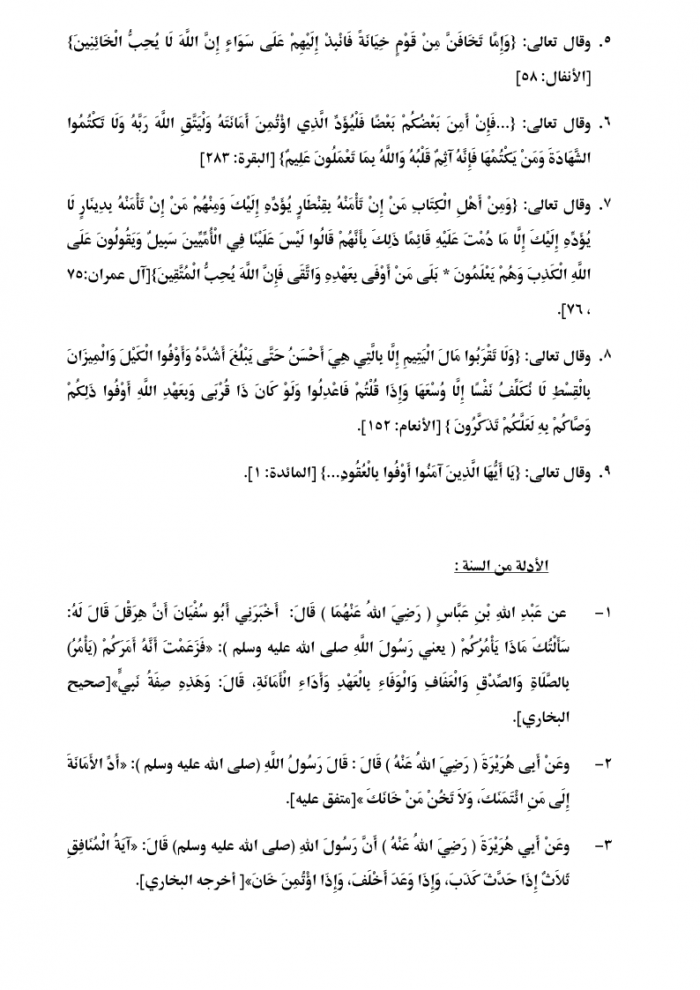 ٥. وقال تعالى: {وَإِمَّا تَخَافَنَّ مِنْ قَوْمٍ خِيَانَةً فَانْبِذْ إِلَيْهِمْ عَلَى سَوَاءٍ إِنَّ اللَّهَ لَا يُحِبُّ الْخَائِنِينَ}
[الأنفال: ٥٨]
٦. وقال تعالى: {...فَإِنْ أَمِنَ بَعْضُكُمْ بَعْضًا فَلْيُؤَدِّ الَّذِي اؤْتُمِنَ أَمَانَتَهُ وَلْيَتَّقِ اللَّهَ رَبَّهُ وَلَا تَكْتُمُوا
الشَّهَادَةَ وَمَنْ يَكْتُمْهَا فَإِنَّهُ آثِمٌ قَلْبُهُ وَاللَّهُ بِمَا تَعْمَلُونَ عَلِيمٌ} [البقرة: ٢٨٣]
٧. وقال تعالى: {وَمِنْ أَهْلِ الْكِتَابِ مَنْ إِنْ تَأْمَنْهُ بِقِنْطَارٍ يُؤَدِّهِ إِلَيْكَ وَمِنْهُمْ مَنْ إِنْ تَأْمَنْهُ بِدِينَارٍ لَا
يُؤَدِّهِ إِلَيْكَ إِلَّا مَا دُمْتَ عَلَيْهِ قَائِمًا ذَلِكَ بِأَنَّهُمْ قَالُوا لَيْسَ عَلَيْنَا فِي الْأُمِّيِّينَ سَبِيلٌ وَيَقُولُونَ عَلَى
اللَّهِ الْكَذِبَ وَهُمْ يَعْلَمُونَ * بَلَى مَنْ أَوْفَى بِعَهْدِهِ وَاتَّقَى فَإِنَّ اللَّهَ يُحِبُّ الْمُتَّقِينَ}[آل عمران:٧٥
، ٧٦].
٨. وقال تعالى: {وَلَا تَقْرَبُوا مَالَ الْيَتِيمِ إِلَّا بِالَّتِي هِيَ أَحْسَنُ حَتَّى يَبْلُغَ أَشُدَّهُ وَأَوْفُوا الْكَيْلَ وَالْمِيزَانَ
بِالْقِسْطِ لَا نُكَلِّفُ نَفْسًا إِلَّا وُسْعَهَا وَإِذَا قُلْتُمْ فَاعْدِلُوا وَلَوْ كَانَ ذَا قُرْبَى وَبِعَهْدِ اللَّهِ أَوْفُوا ذَلِكُمْ
وَصَّاكُمْ بِهِ لَعَلَّكُمْ تَذَكَّرُونَ } [الأنعام: ١٥٢].
٩. وقال تعالى: {يَا أَيُّهَا الَّذِينَ آمَنُوا أَوْفُوا بِالْعُقُودِ...} [المائدة: ١].
الأدلة من السنة :
١- عن عَبْدِ اللهِ بْنِ عَبَّاسٍ ( رَضِيَ اللهُ عَنْهُمَا ) قَالَ: أَخْبَرَنِي أَبُو سُفْيَانَ أَنَّ هِرَقْلَ قَالَ لَهُ:
سَأَلْتُكَ مَاذَا يَأْمُرُكُمْ ( يعني رَسُولَ اللَّهِ صلى الله عليه وسلم ): «فَزَعَمْتَ أَنَّهُ أَمَرَكُمْ (يَأْمُرُ)
بِالصَّلَاةِ وَالصِّدْقِ وَالْعَفَافِ وَالْوَفَاءِ بِالْعَهْدِ وَأَدَاءِ الْأَمَانَةِ، قَالَ: وَهَذِهِ صِفَةُ نَبِيٍّ»[صحيح
البخاري].
٢- وعَنْ أَبِى هُرَيْرَةَ ( رَضِيَ اللهُ عَنْهُ ) قَالَ : قَالَ رَسُولُ اللَّهِ (صلى الله عليه وسلم ): «أَدِّ الأَمَانَةَ
إِلَى مَنِ ائْتَمَنَكَ، وَلاَ تَخُنْ مَنْ خَانَكَ »[متفق عليه].
٣- وعَنْ أَبِي هُرَيْرَةَ ( رَضِيَ اللهُ عَنْهُ ) أَنَّ رَسُولَ اللهِ (صلى الله عليه وسلم) قَالَ: «آيَةُ الْمُنَافِقِ
ثَلاَثٌ إِذَا حَدَّثَ كَذَبَ، وَإِذَا وَعَدَ أَخْلَفَ، وَإِذَا اؤْتُمِنَ خَانَ»[ أخرجه البخاري].